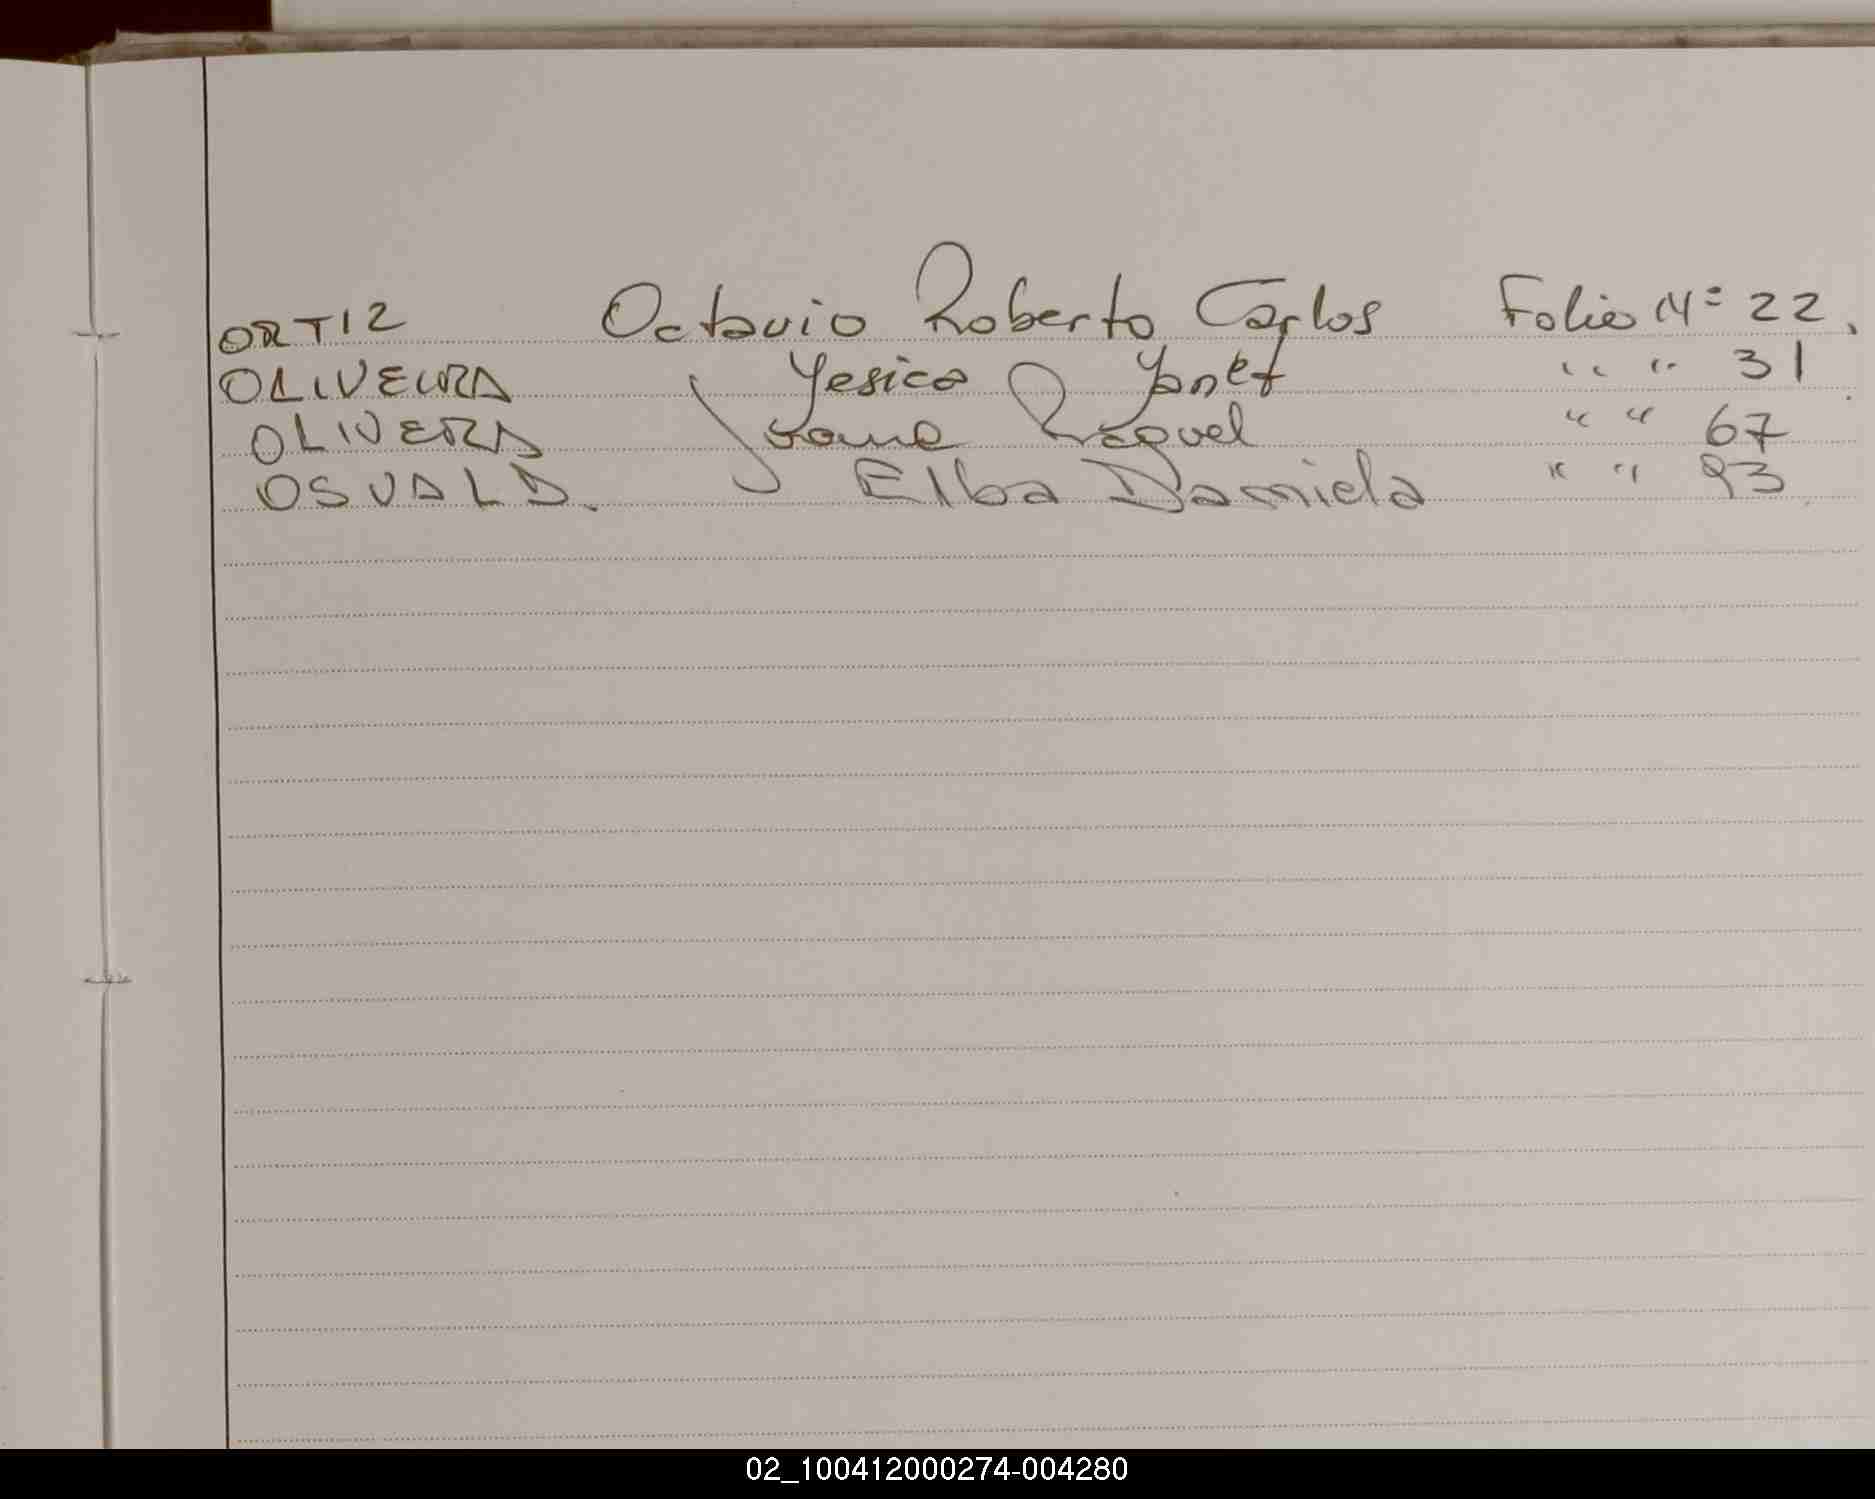 ORTIZ Octavio Roberto Carlos Folio Nº 22.
OLIVEIRA Yesica Yanet " " 31
OLIVERA Joana Raquel " " 67
OSUALD. Elba Daniela " " 93
02_100412000274-004280